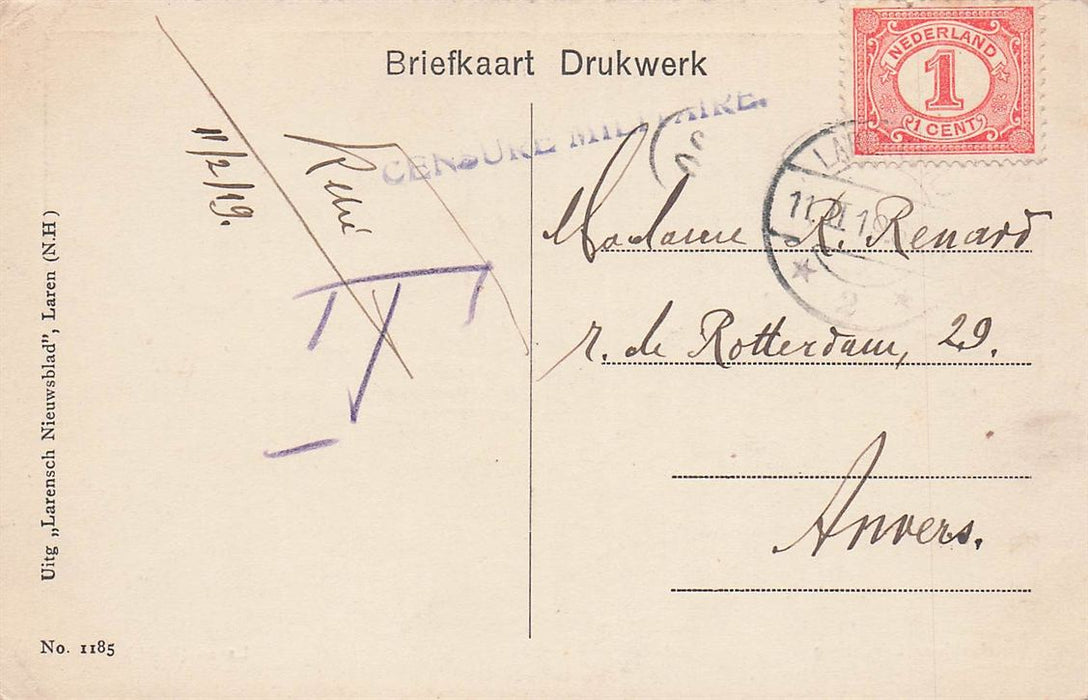 Briefkaart Drukwerk
NEDERLAND
1
1 CENT
CENSURE MILITAIRE.
11/2/19.
René
11.II.19
2
Madame R. Renard
r. de Rotterdam, 29.
Anvers.
Uitg „Larensch Nieuwsblad", Laren (N.H)
No. 1185